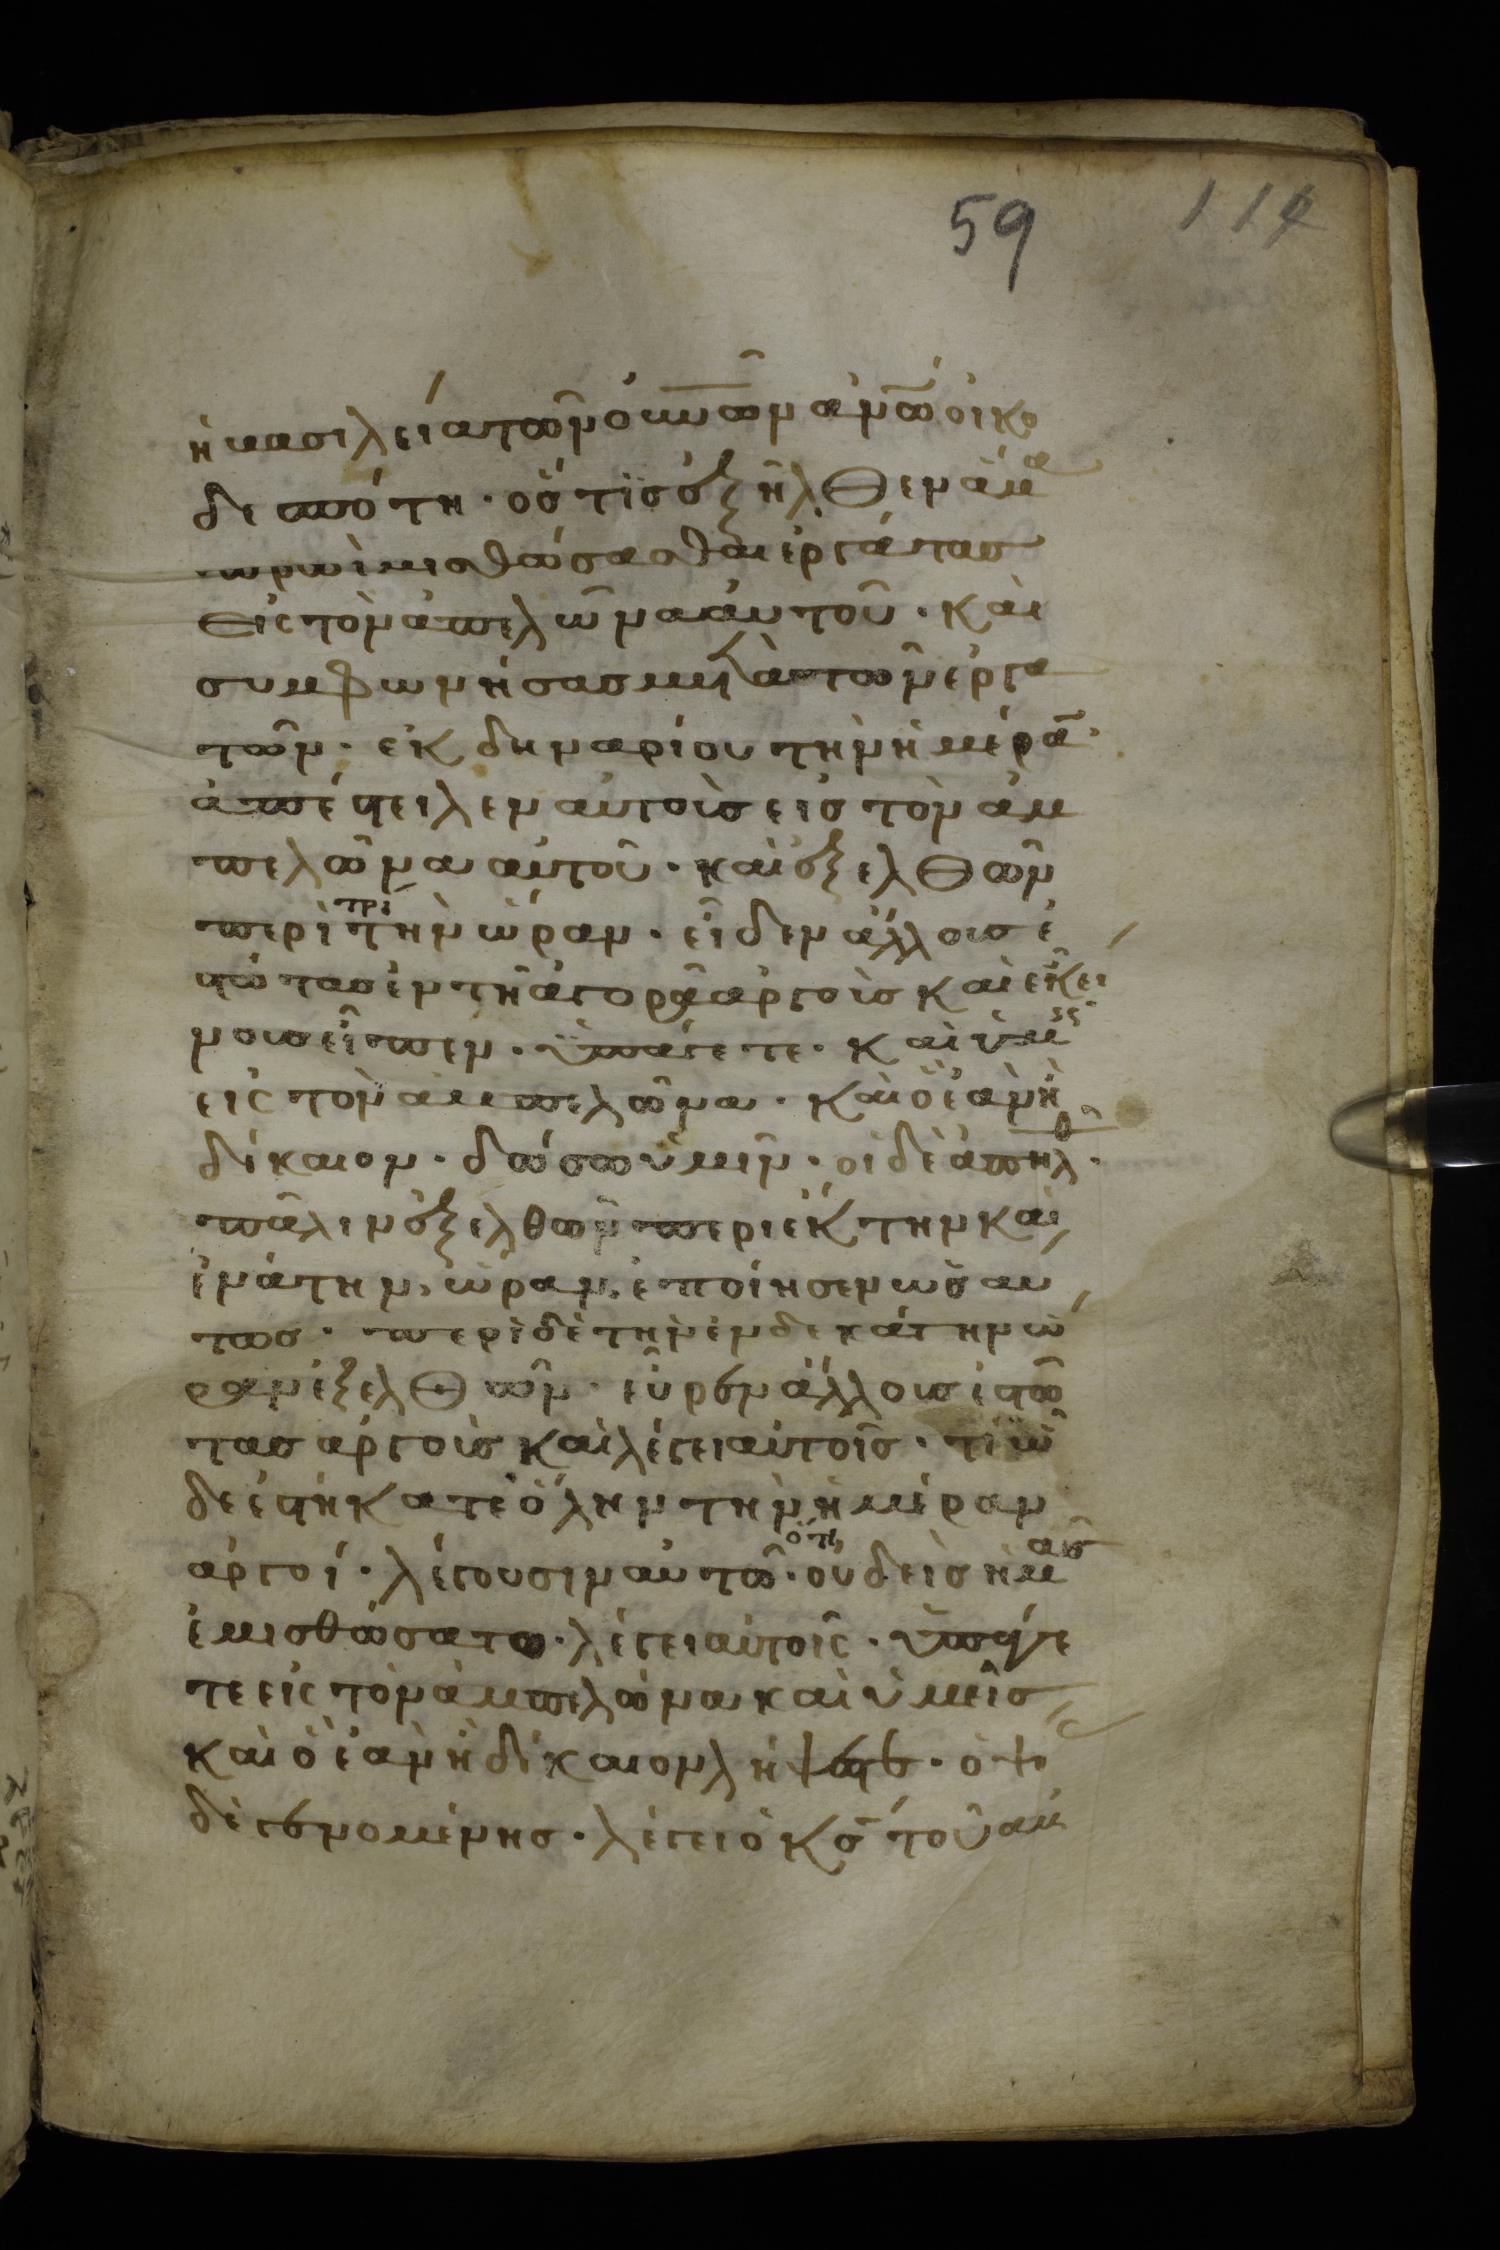 59 114
ἡ βασιλεία τῶν οὐνῶν ἀνῶ οἰκο
δεσπότη· ὅστις ἐξῆλθεν ἅμα
πρωῒ μισθώσασθαι ἐργάτας
εἰς τὸν ἀμπελῶνα αὐτοῦ· καὶ
συμφωνήσας μετὰ τῶν ἐργα
τῶν· ἐκ δηναρίου τὴν ἡμέρα̅·
ἀπέστειλεν αὐτοὺς εἰς τὸν ἀμ
πελῶνα αὐτοῦ· καὶ ἐξελθὼν
περὶ τρίτην ὥραν· εἶδεν ἄλλους ἑ
στῶτας ἐν τῆ ἀγορᾶ ἀργοὺς καὶ ἐκεί
νοις εἶπεν· ὑπάγετε· καὶ ὑμεῖς
εἰς τὸν ἀμπελῶνα· καὶ ὃ ἐὰν ἦ
δίκαιον· δώσω ὑμῖν· οἱ δὲ ἀπῆλθ̅·
πάλιν ἐξελθὼν περὶ ἕκτην καὶ
ἐνάτην, ὥραν, ἐποίησεν ὡσαύ
τως· περὶ δὲ τὴν ἑνδεκάτην ὥ
ραν ἐξελθὼν· εὗρεν ἄλλους ἑστῶ
τας ἀργοὺς καὶ λέγει αὐτοῖς· τί ὧ
δε ἑστήκατε ὅλην τὴν ἡμέραν
ἀργοί· λέγουσιν αὐτῶ· ὅτι οὐδεὶς ἡμᾶς
ἐμισθώσατω· λέγει αὐτοῖς· ὑπάγε
τε εἰς τὸν ἀμπελῶνα καὶ ὑμεῖς
καὶ ὃ ἐὰν ἦ δίκαιον λήψεσθε· ὀψί
δὲ γενομένης· λέγει ὁ κς̅ τοῦ ἀμ